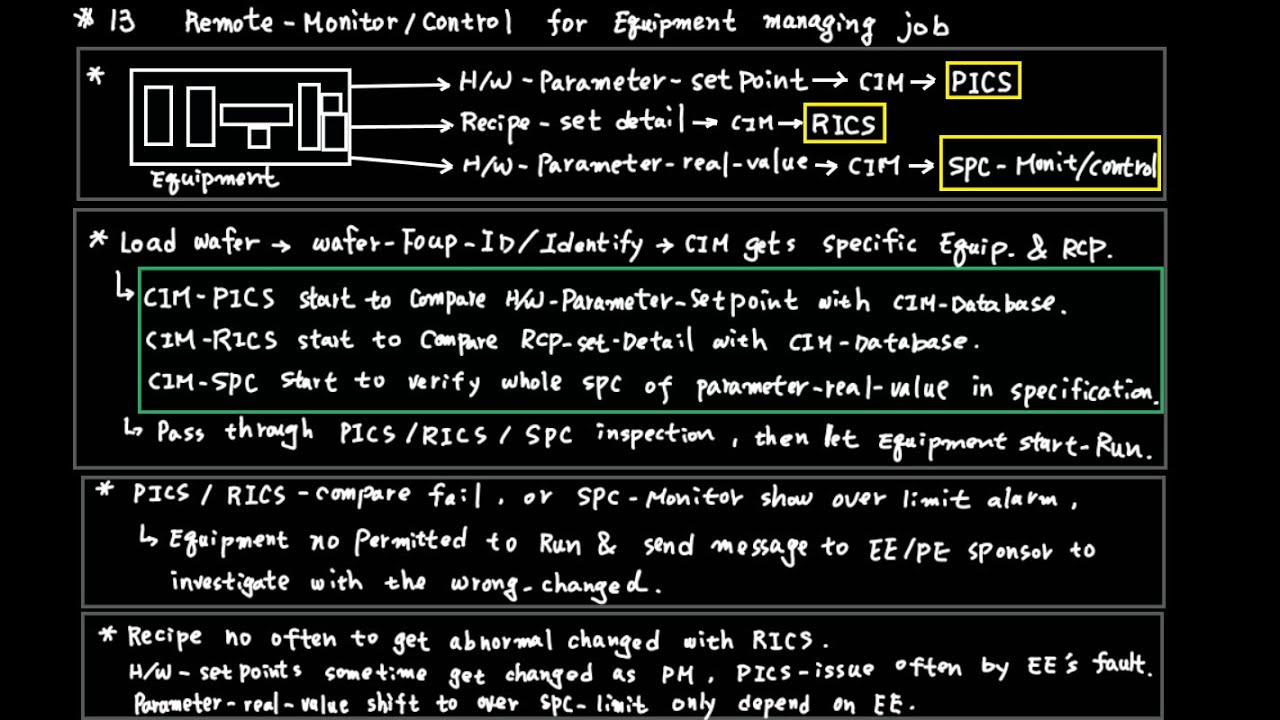 * 13 Remote-Monitor/Control for Equipment managing job
* H/W-Parameter-set point → CIM → PICS
Recipe-set detail → CIM → RICS
H/W-Parameter-real-value → CIM → SPC-Monit/control
Equipment
* Load wafer → wafer-Foup-ID/Identify → CIM gets specific Equip. & RCP.
↳ CIM-PICS start to compare H/W-Parameter-Setpoint with CIM-Database.
CIM-RICS start to compare RCP-set-Detail with CIM-Database.
CIM-SPC start to verify whole SPC of parameter-real-value in specification.
↳ Pass through PICS/RICS/SPC inspection, then let Equipment start-Run.
* PICS/RICS-compare fail, or SPC-Monitor show over limit alarm,
↳ Equipment no Permitted to Run & send message to EE/PE sponsor to
investigate with the wrong-changed.
* Recipe no often to get abnormal changed with RICS.
H/W-set points sometime get changed as PM, PICS-issue often by EE's fault.
Parameter-real-value shift to over SPC-limit only depend on EE.